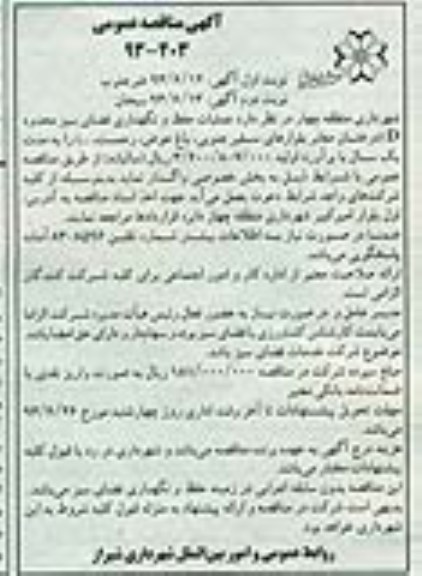 آگهی مناقصه عمومی
۹۳-۲۰۳
نوبت اول آگهی: ۹۳/۸/۱۳
نوبت دوم آگهی: ۹۳/۸/۱۴ سبحان
شهرداری منطقه چهار در نظر دارد عملیات حفظ و نگهداری فضای سبز محدوده
یک سال با برآورد اولیه ریال از طریق مناقصه
عمومی با شرایط ذیل به بخش خصوصی واگذار نماید بدینوسیله از کلیه
شرکتهای واجد شرایط دعوت بعمل می‌آید جهت اخذ اسناد مناقصه به آدرس:
اول بلوار امیرکبیر شهرداری منطقه چهار دایره قراردادها مراجعه نمایند.
ضمنا در صورت نیاز به اطلاعات بیشتر شماره تلفن آماده
پاسخگویی می‌باشد.
ارائه صلاحیت معتبر از اداره کار و امور اجتماعی برای کلیه شرکت کنندگان
الزامی است.
مدیر عامل و در صورت نیاز به حضور فعال رئیس هیأت مدیره شرکت الزاما
می‌بایست کارشناس کشاورزی یا فضای سبز بوده و سهامدار و دارای حق امضا باشد.
موضوع شرکت خدمات فضای سبز باشد.
مبلغ سپرده شرکت در مناقصه ریال به صورت واریز نقدی یا
ضمانتنامه بانکی معتبر
مهلت تحویل پیشنهادات تا آخر وقت اداری روز چهارشنبه مورخ
می‌باشد.
هزینه درج آگهی به عهده برنده مناقصه می‌باشد و شهرداری در رد یا قبول کلیه
پیشنهادات مختار می‌باشد.
این مناقصه بدون سابقه اجرایی در زمینه حفظ و نگهداری فضای سبز می‌باشد.
بدیهی است شرکت در مناقصه و ارائه پیشنهاد به منزله قبول کلیه شروط به این
شهرداری خواهد بود.
روابط عمومی و امور بین‌الملل شهرداری شیراز